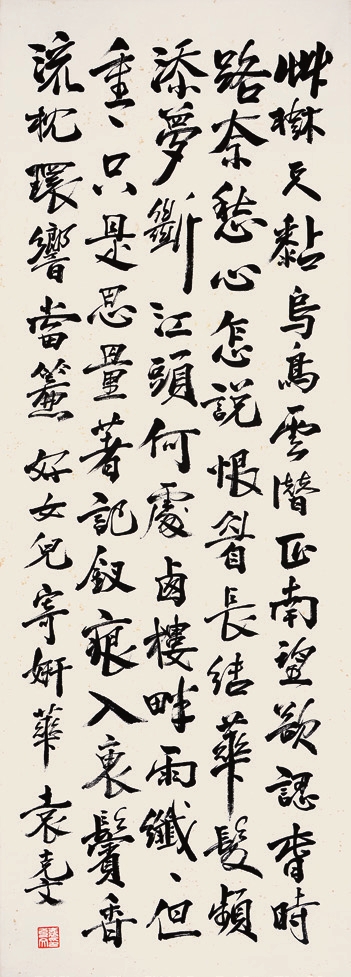 艸樹天黏烏鳥雲潛正南望欲認昔時
路奈愁心怎說恨眉長結華髮頻
添夢斷江頭何處鹵樓畔雨纖〻但
重〻只是思量著記釵痕入裏鬢香
流枕環響當簾好女兒寄妍華袁克文